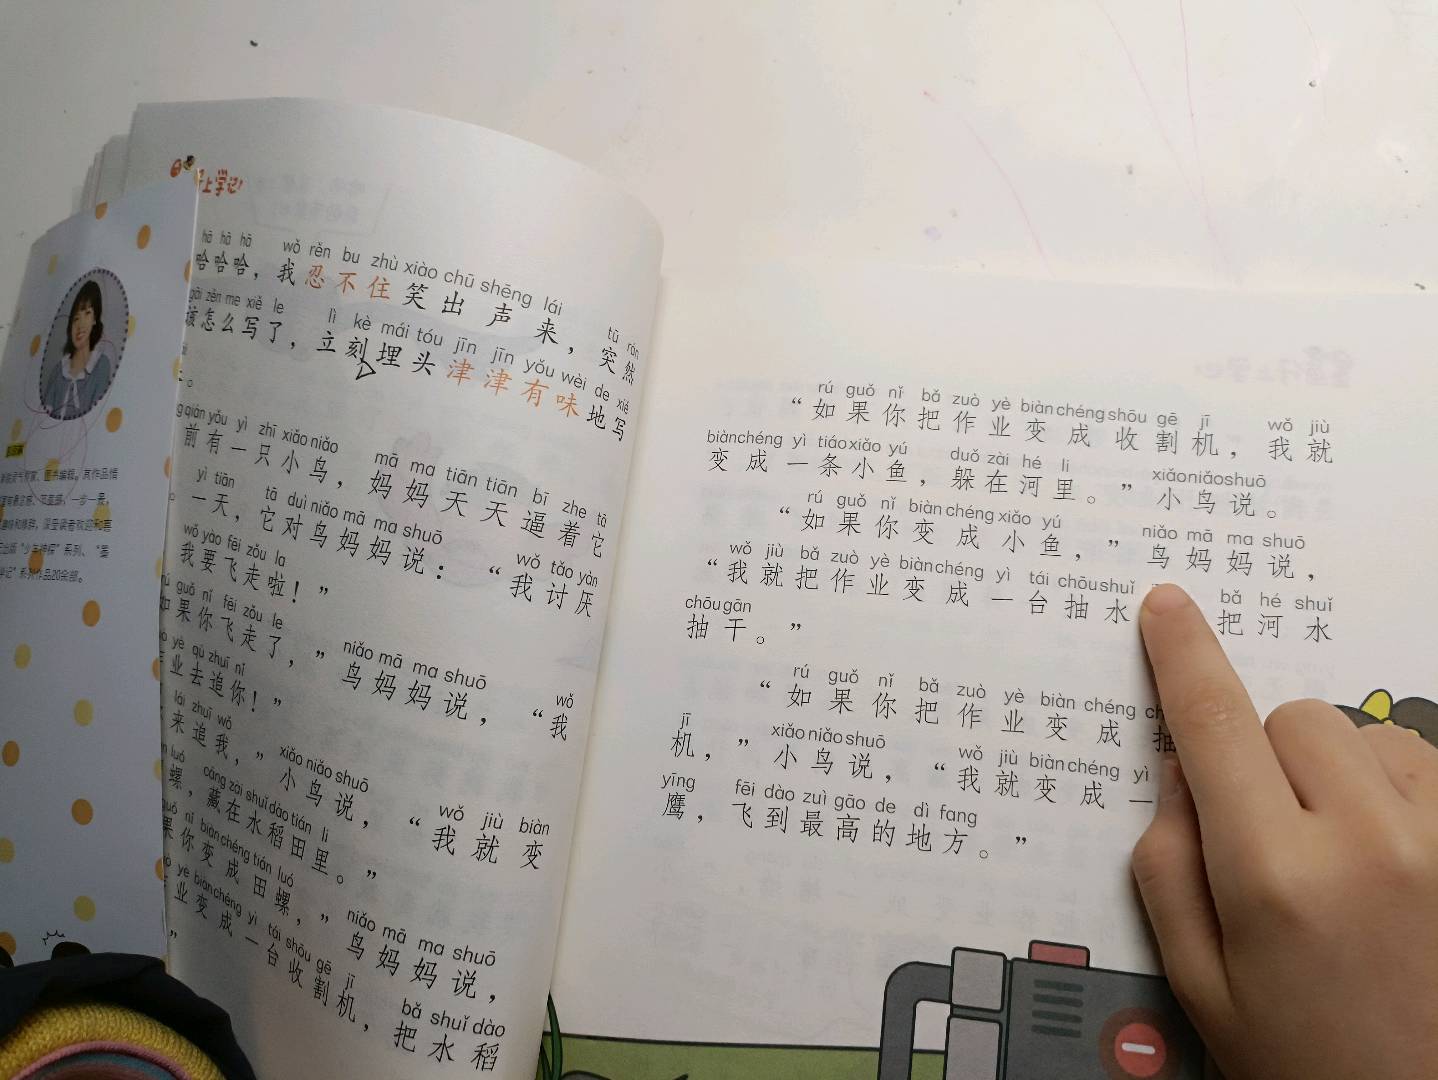 上学记
hā hā hā wǒ rěn bu zhù xiào chū shēng lái tū rán
哈哈哈，我忍不住笑出声来，突然
gāi zěn me xiě le lì kè mái tóu jīn jīn yǒu wèi de xiě
该怎么写了，立刻埋头津津有味地写
。
qián yǒu yì zhī xiǎo niǎo mā ma tiān tiān bī zhe tā
前有一只小鸟，妈妈天天逼着它
yì tiān tā duì niǎo mā ma shuō wǒ tǎo yàn
。一天，它对鸟妈妈说：“我讨厌
wǒ yào fēi zǒu la
我要飞走啦！”
rú guǒ nǐ fēi zǒu le niǎo mā ma shuō wǒ
如果你飞走了，”鸟妈妈说，“我
yè qù zhuī nǐ
业去追你！”
lái zhuī wǒ xiǎo niǎo shuō wǒ jiù biàn
来追我，”小鸟说，“我就变
luó cáng zài shuǐ dào tián li
螺，藏在水稻田里。”
guǒ nǐ biàn chéng tián luó niǎo mā ma shuō
果你变成田螺，”鸟妈妈说，
yè biàn chéng yì tái shōu gē jī bǎ shuǐ dào
业变成一台收割机，把水稻
”
rú guǒ nǐ bǎ zuò yè biàn chéng shōu gē jī wǒ jiù
“如果你把作业变成收割机，我就
biàn chéng yì tiáo xiǎo yú duǒ zài hé li xiǎo niǎo shuō
变成一条小鱼，躲在河里。”小鸟说。
rú guǒ nǐ biàn chéng xiǎo yú niǎo mā ma shuō
“如果你变成小鱼，”鸟妈妈说，
wǒ jiù bǎ zuò yè biàn chéng yì tái chōu shuǐ bǎ hé shuǐ
“我就把作业变成一台抽水 把河水
chōu gān
抽干。”
rú guǒ nǐ bǎ zuò yè biàn chéng
“如果你把作业变成抽
jī xiǎo niǎo shuō wǒ jiù biàn chéng yì
机，”小鸟说，“我就变成一
yīng fēi dào zuì gāo de dì fang
鹰，飞到最高的地方。”